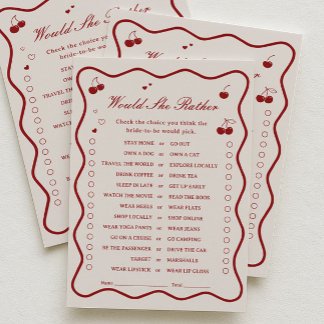 Would She Rather
Check the choice you think the
bride-to-be would pick.
STAY HOME or GO OUT
OWN A DOG or OWN A CAT
TRAVEL THE WORLD or EXPLORE LOCALLY
DRINK COFFEE or DRINK TEA
SLEEP IN LATE or GET UP EARLY
WATCH THE MOVIE or READ THE BOOK
WEAR HEELS or WEAR FLATS
SHOP LOCALLY or SHOP ONLINE
WEAR YOGA PANTS or WEAR JEANS
GO ON A CRUISE or GO CAMPING
BE THE PASSENGER or DRIVE THE CAR
TARGET or MARSHALLS
WEAR LIPSTICK or WEAR LIP GLOSS
Name Total
Would She Rather
Check the choice y
bride-to-be wo
STAY
OW
TRAVEL THE
DRINK
SLEE
WATCH
Would She R
Check the choice you thi